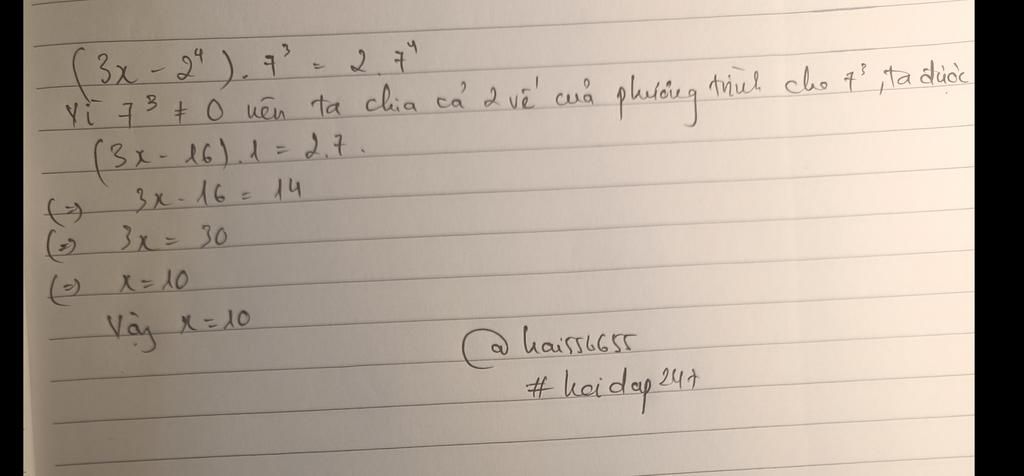 (3x - 2⁴). 7³ = 2.7⁴
Vì 7³ ≠ 0 nên ta chia cả 2 vế của phương trình cho 7³, ta được
(3x - 16).1 = 2.7.
(=) 3x - 16 = 14
(=) 3x = 30
(=) x = 10
Vậy x = 10
@hai556655
#hoidap247